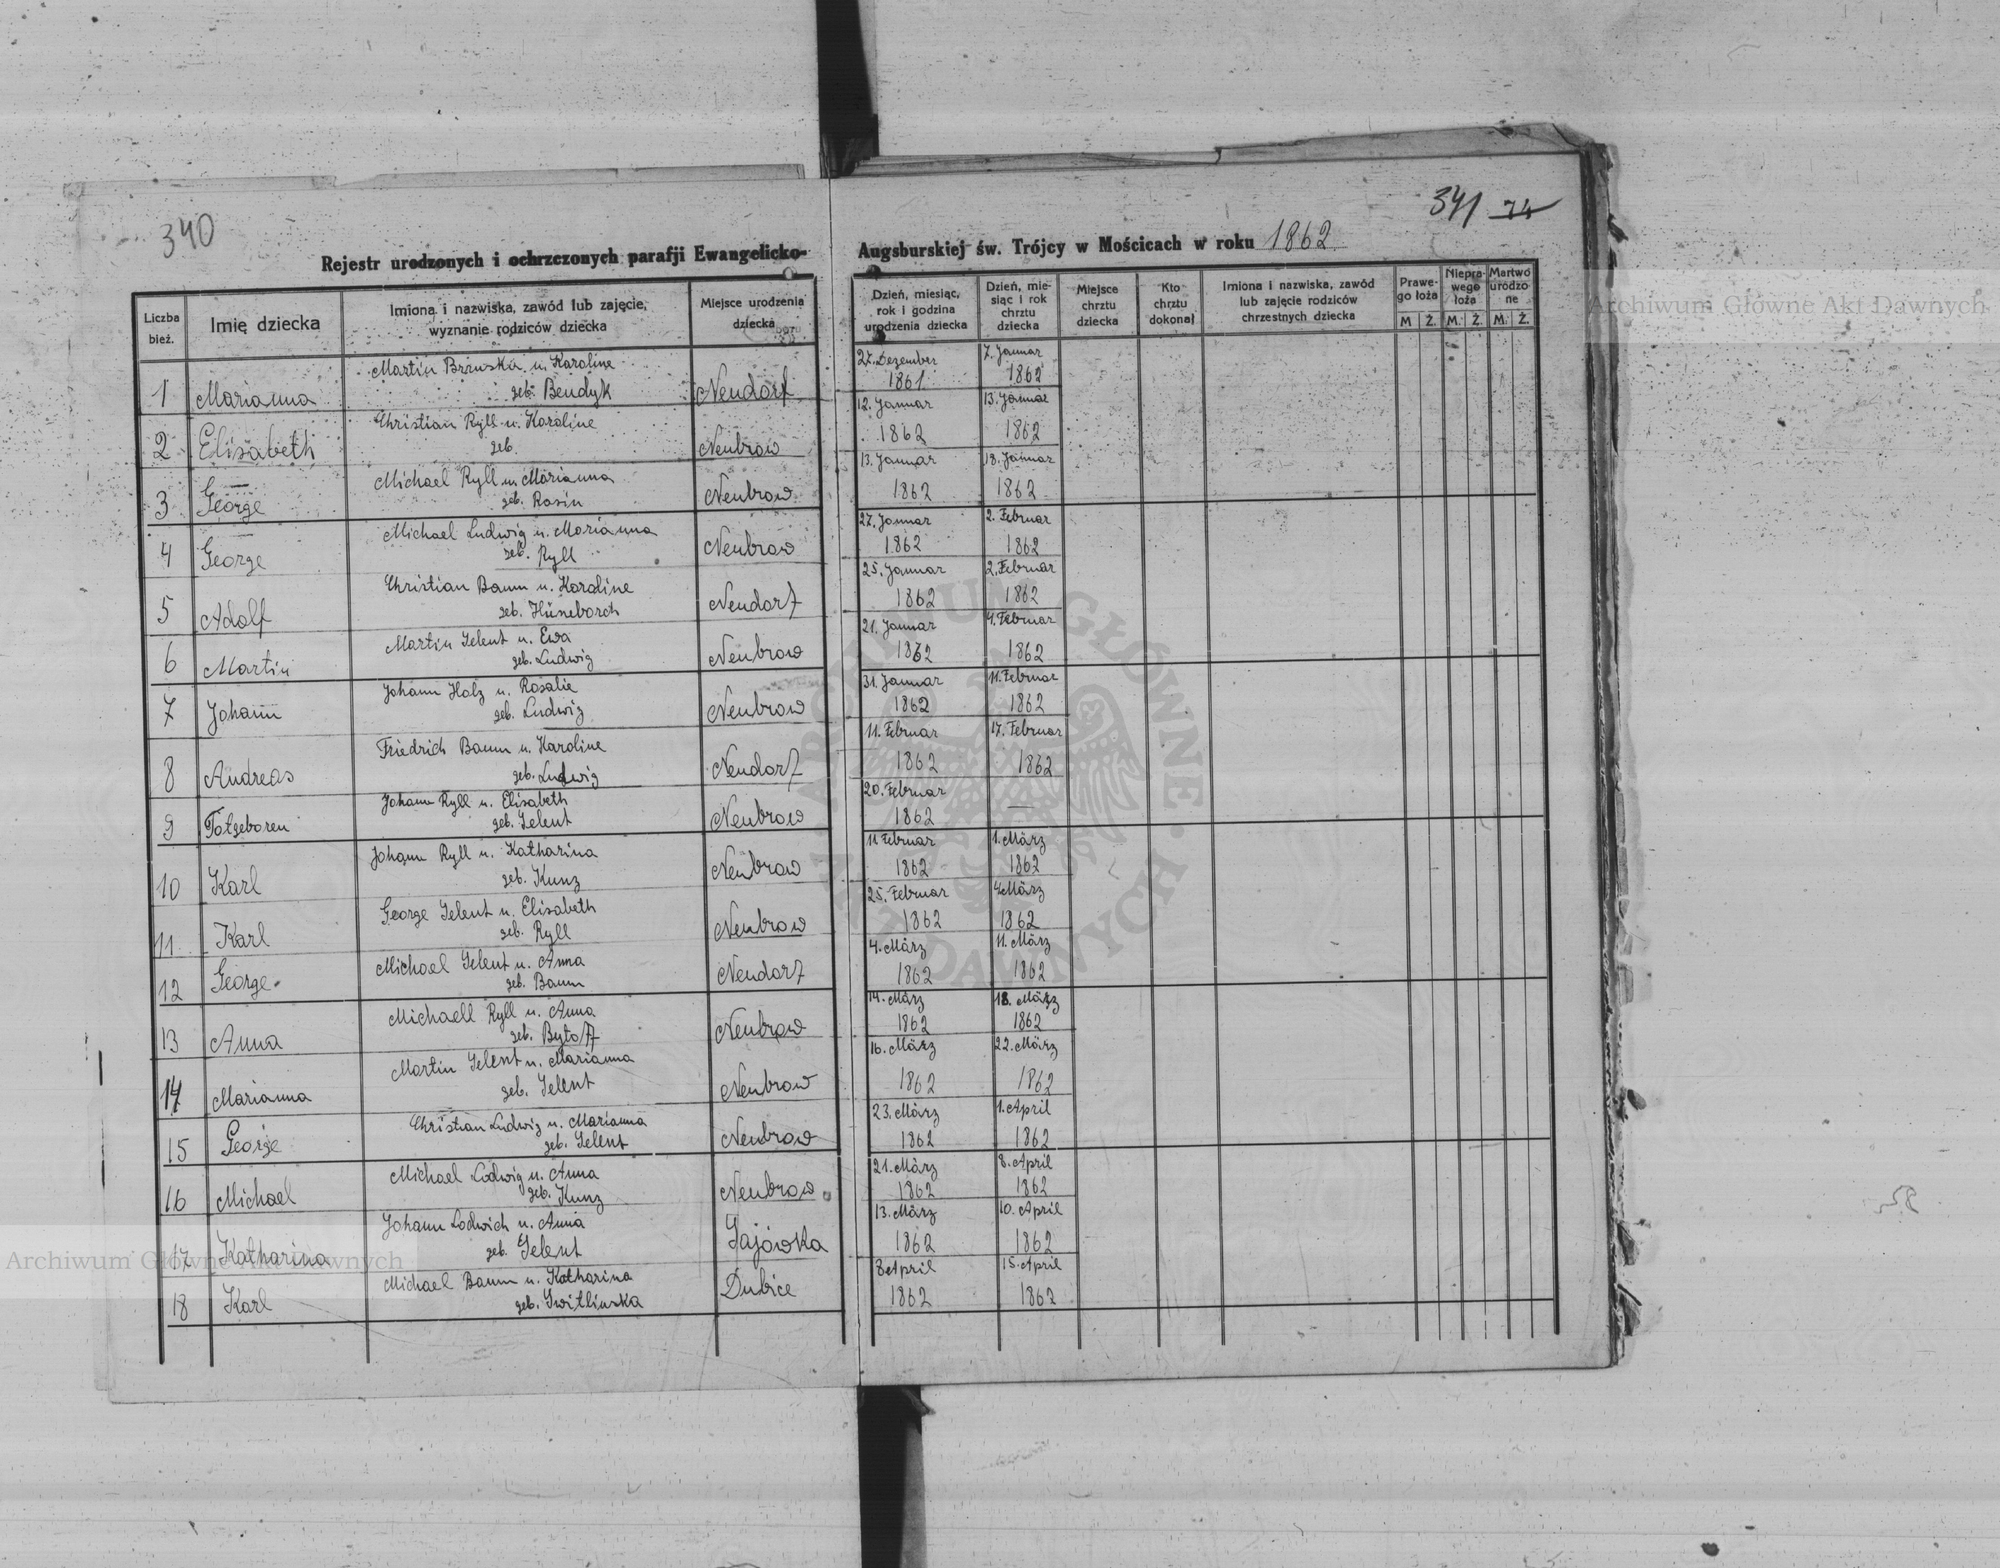 340
341 74
Rejestr urodzonych i ochrzczonych parafji Ewangelicko-Augsburskiej św. Trójcy w Mościcach w roku 1862
Liczba bież.
Imię dziecka
Imiona i nazwiska, zawód lub zajęcie, wyznanie rodziców dziecka
Miejsce urodzenia dziecka
Dzień, miesiąc, rok i godzina urodzenia dziecka
Dzień, miesiąc i rok chrztu dziecka
Miejsce chrztu dziecka
Kto chrztu dokonał
Imiona i nazwiska, zawód lub zajęcie rodziców chrzestnych dziecka
Prawego łoża
Nieprawego łoża
Martwo urodzone
M Ż. M. Ż. M. Ż.
1 Marianna Martin Bruska u. Karoline geb. Bendyk Neudorf 27. Dezember 1861 7. Januar 1862
2 Elisabeth Christian Ryll u. Karoline geb. Neubrow 12. Januar 1862 13. Januar 1862
3 George Michael Ryll u. Marianna geb. Rosin Neubrow 13. Januar 1862 18. Januar 1862
4 George Michael Ludwig u. Marianna geb. Ryll Neubrow 27. Januar 1862 2. Februar 1862
5 Adolf Christian Baum u. Karoline geb. Hüneborch Neudorf 25. Januar 1862 2. Februar 1862
6 Martin Martin Selent u. Ewa geb. Ludwig Neubrow 21. Januar 1862 4. Februar 1862
7 Johann Johann Holz u. Rosalie geb. Ludwig Neubrow 31. Januar 1862 11. Februar 1862
8 Andreas Friedrich Baum u. Karoline geb. Ludwig Neudorf 11. Februar 1862 17. Februar 1862
9 Totgeboren Johann Ryll u. Elisabeth geb. Selent Neubrow 20. Februar 1862 —
10 Karl Johann Ryll u. Katharina geb. Kunz Neubrow 11 Februar 1862 1. März 1862
11. Karl George Selent u. Elisabeth geb. Ryll Neubrow 25. Februar 1862 4. März 1862
12 George. Michael Selent u. Anna geb. Baum Neudorf 4. März 1862 11. März 1862
13 Anna Michaell Ryll u. Anna geb. Bytoff Neubrow 14. März 1862 18. März 1862
14 Marianna Martin Selent u. Marianna geb. Selent Neubrow 16. März 1862 22. März 1862
15 George Christian Ludwig u. Marianna geb. Selent Neubrow 23. März 1862 1. April 1862
16 Michael Michael Lodwig u. Anna geb. Kunz Neubrow 21. März 1862 8. April 1862
17 Katharina Johann Lodwich u. Anna geb. Selent Gajówka 13. März 1862 10. April 1862
18 Karl Michael Baum u. Katharina geb. Switlinska Dubice 8 April 1862 15. April 1862
Archiwum Główne Akt Dawnych
Archiwum Główne Akt Dawnych
ARCHIWUM GŁÓWNE AKT DAWNYCH